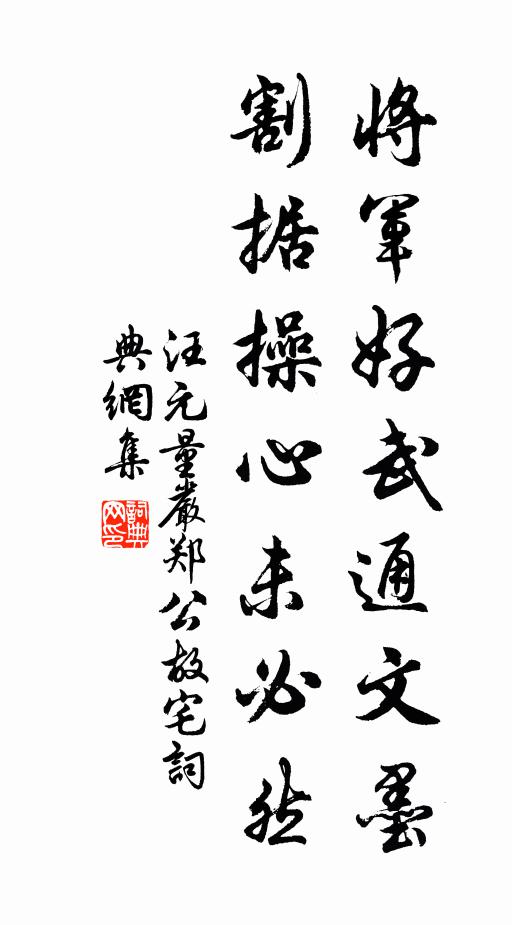 將軍好武通文墨
割据操心未必然
汪元量嚴郑公故宅詞
典網集
詞典网印